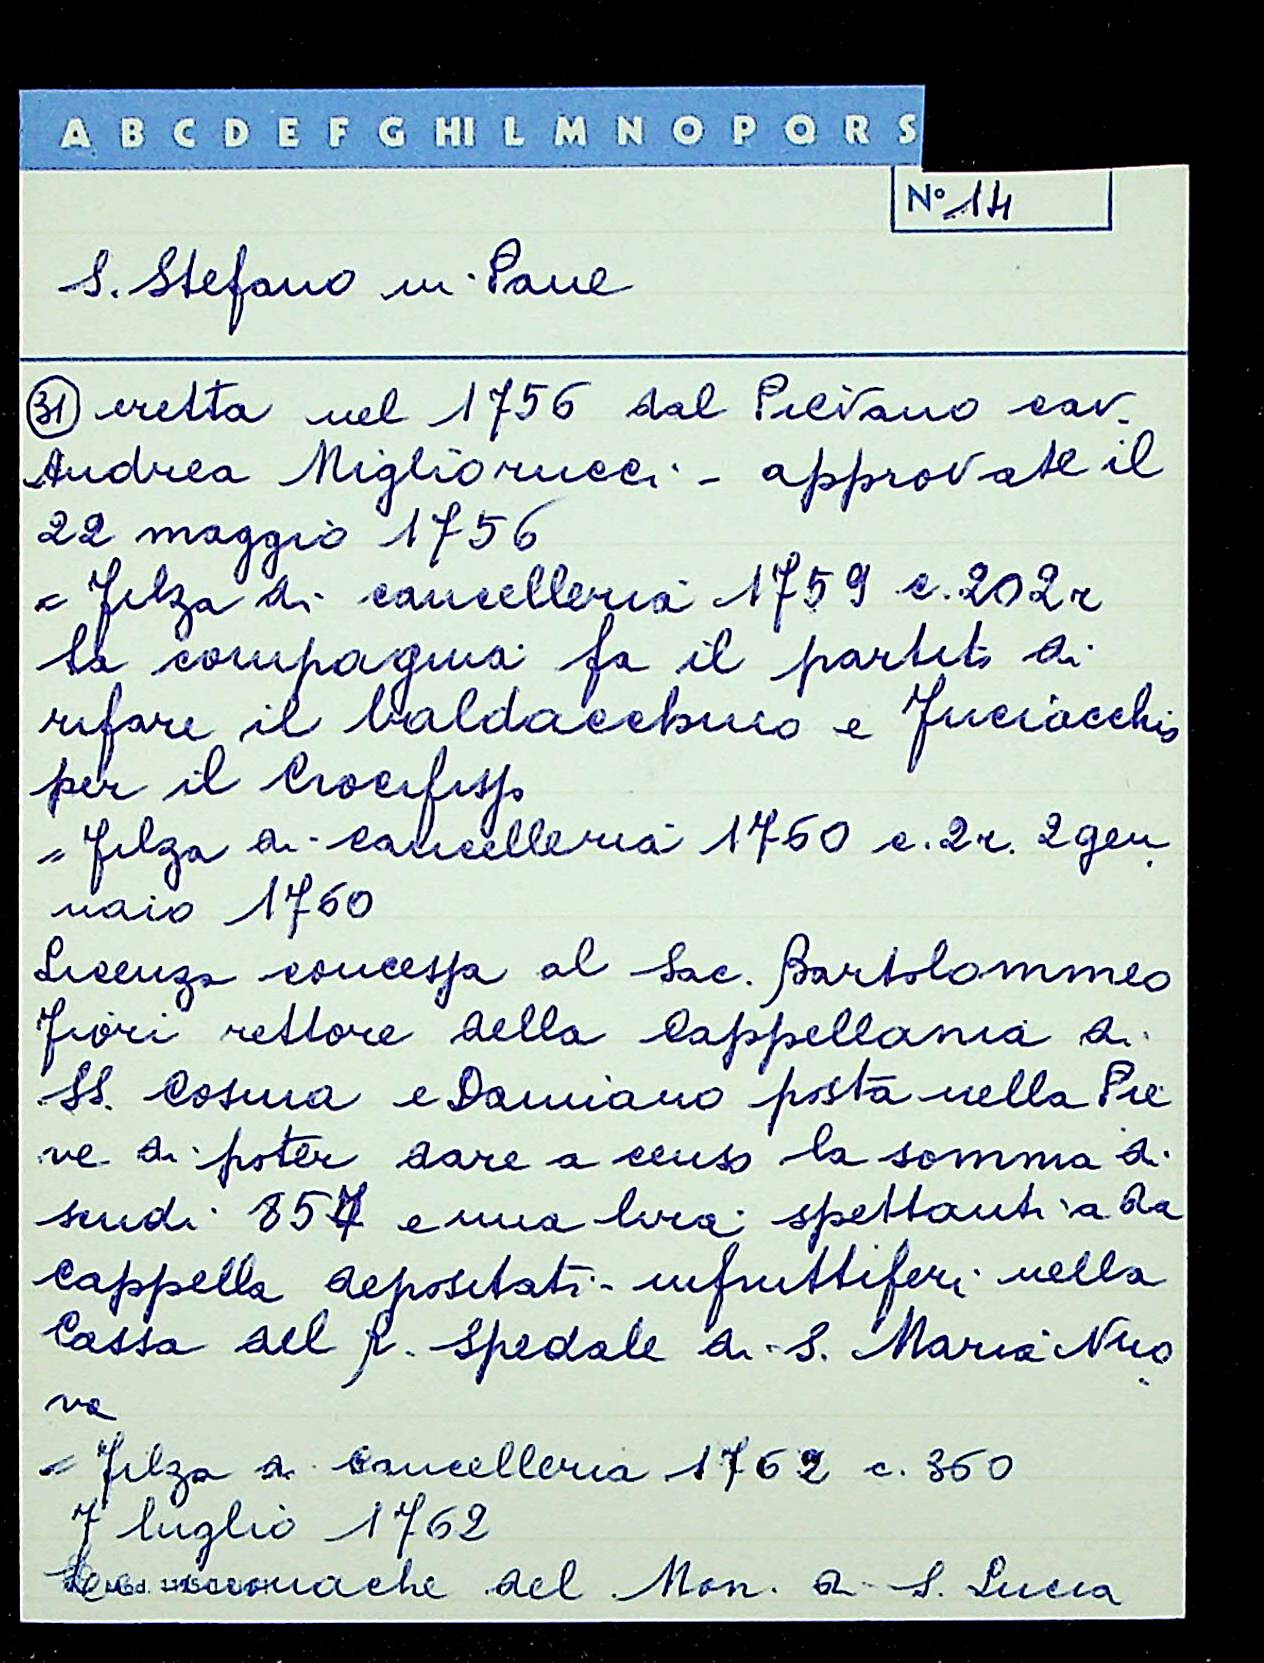 A B C D E F G HI L M N O P Q R S
N° 14
S. Stefano in Pane
31 eretta nel 1756 dal Pievano cav.
Andrea Migliorucci - approvate il
22 maggio 1756
= Filza di cancelleria 1759 c. 202r
La compagnia fa il partito di
rifare il baldacchino e Inciacchio
per il Crocifisso
= Filza di cancelleria 1760 c. 2r. 2 gen
naio 1760
Licenza concessa al Sac. Bartolommeo
Fiori rettore della Cappellania di
SS. Cosma e Damiano posta nella Pie
ve di poter dare a censo la somma di
scudi 857 e una lira spettanti a da
Cappella depositati infruttiferi nella
Cassa del R. Spedale di S. Maria Nuo
va
= Filza di Cancelleria 1762 c. 360
7 luglio 1762
Le monache del Mon. di S. Lucia